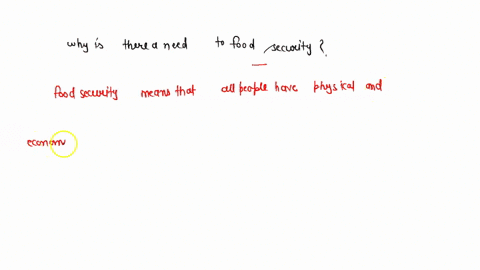 why is there a need to food security ?
food security means that all people have physical and
econom